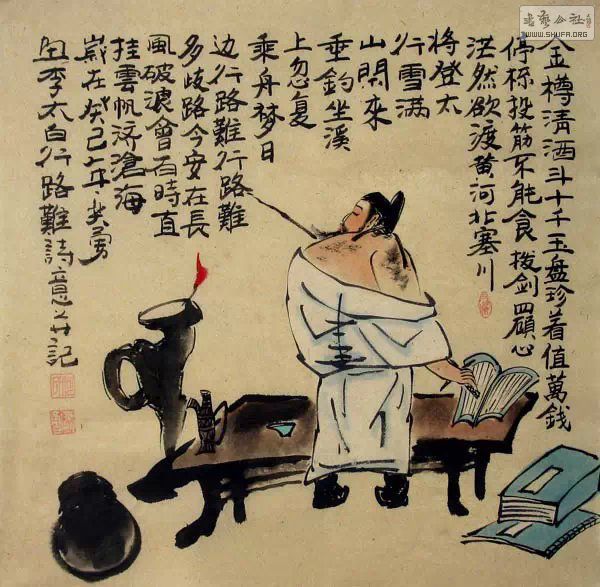 金樽清酒斗十千玉盘珍着值萬錢
停杯投筋不能食拨剑四顧心
茫然欲渡黄河冰塞川
将登太
行雪满
山閑來
垂釣坐溪
上忽复
乘舟梦日
边行路難行路難
多歧路今安在長
風破浪會有時直
挂雲帆济滄海
歲在癸巳年勇
画李太白行路難詩意并記
书艺公社
WWW.SHUFA.ORG